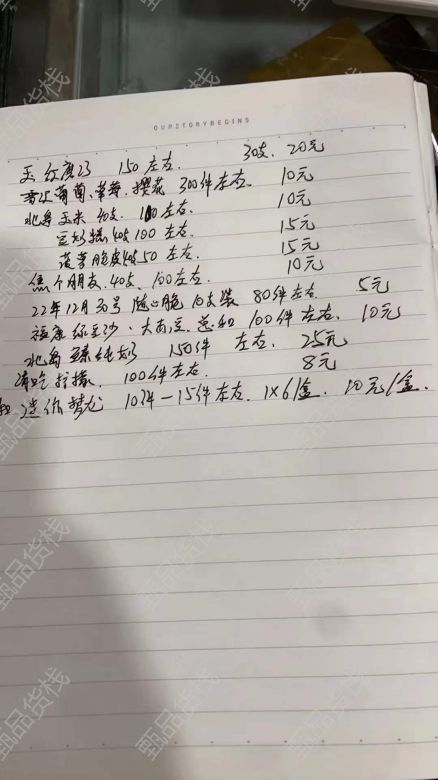 OURSTORYBEGINS
红唐 23 150左右. 30支, 20元
葡萄、草莓、樱花 300件左右. 10元
北海玉米 40支. 左右. 10元
40支 100左右 15元
菠萝脆皮 50左右. 15元
焦个朋友. 40支、100左右 10元
22年12月30号 随心脆 10支装 80件左右 5元
福康绿豆沙、大红豆 总和 100件左右. 10元
北海 150件 左右. 25元
清吃柠檬. 100件左右. 8元
迷你梦龙 10件-15件左右. 1×6/盒. 10元/盒.
甄品货栈